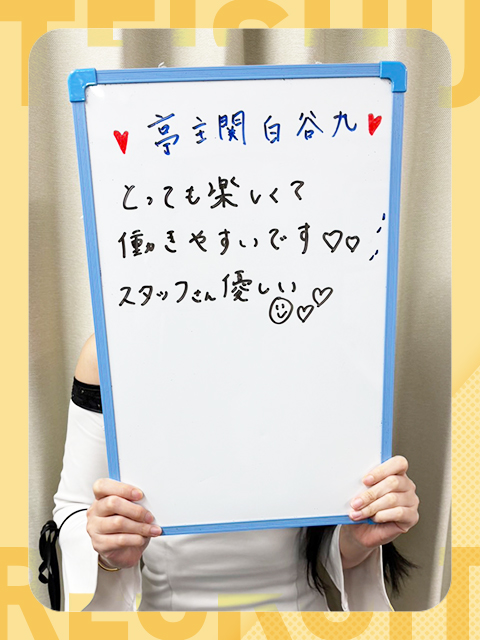 TEISHU
亭主関白谷九
とっても楽しくて
働きやすいです
スタッフさん優しい
RECRUIT